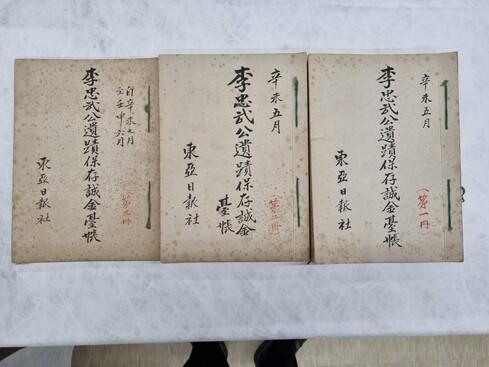 辛未五月
李忠武公遺蹟保存誠金臺帳
(第一冊)
東亞日報社
辛未五月
李忠武公遺蹟保存誠金
臺帳
(第二冊)
東亞日報社
自辛未五月
至壬申六月
李忠武公遺蹟保存誠金臺帳
東亞日報社